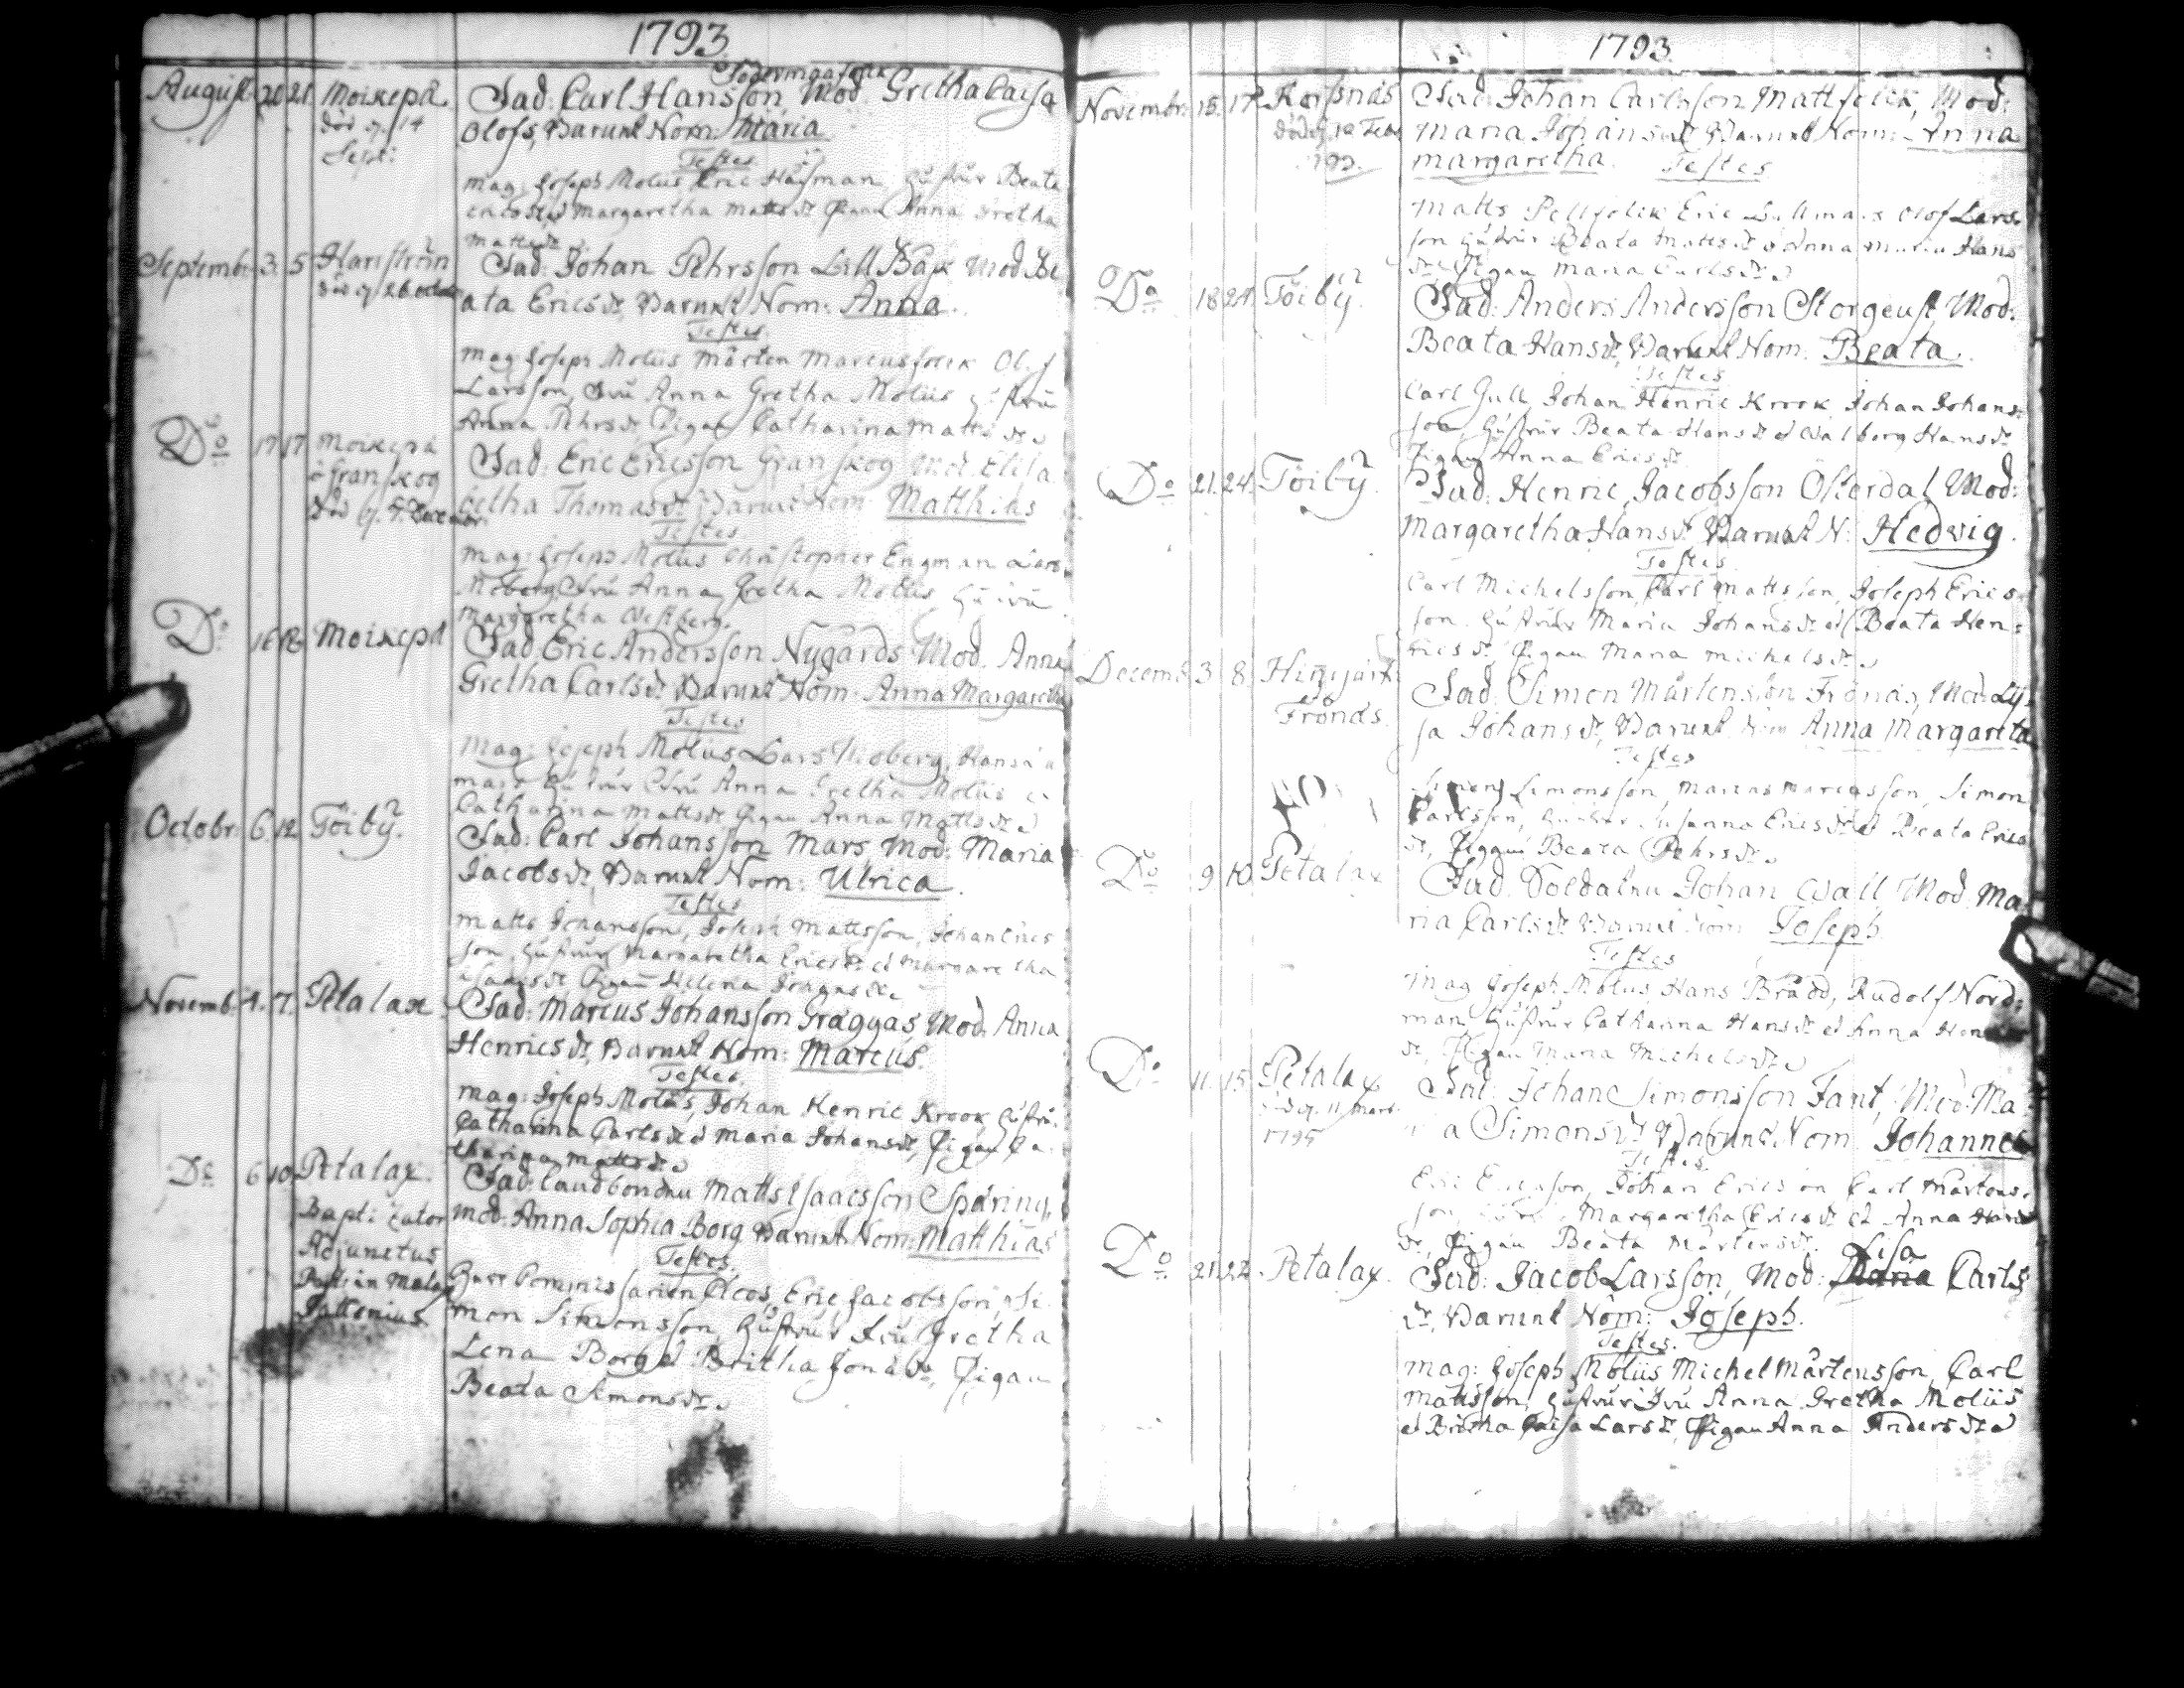 1793
August 20 21 Moikepä Fad: Carl Hansson Södermgafolk, Mod. Gretha Caisa
död d. 14 Sept: Olofs, Barnet Nom: Maria
Testes
Mag: Joseph Molius Eric Håfman, Hustrur Beata
Ericsdr, Margaretha Mattsdr Pigan Anna Gretha
Mattsdr
Septemb: 3. 5 Harrström Fad: Johan Pehrsson Lill Båsk Mod Be
död d. 26 octob ata Ericsdr, Barnet Nom: Anna.
Testes
Mag: Joseph Molius Mårten Marcusfolck Olof
Larsson, Fru Anna Gretha Molius Hustru
Anna Pehrsdr Pigan Catharina Mattsdr
Do 17 17 Moikepä Fad: Eric Ericsson Granskog Mod. Elisa
o Granskog betha Thomasdr Barnet Nom Matthias
död d. Decembr
Testes
Mag: Joseph Molius Christopher Engman Lars
Moberg Fru Anna Gretha Molius, Hustru
Margaretha Westberg.
Do 16 18 Moikepä Fad Eric Andersson Nygårds Mod. Anna
Gretha Carlsdr Barnet Nom: Anna Margaretha
Testes
Mag: Joseph Molius Lars Moberg, Hans
Hustrur Fru Anna Gretha Molius
Catharina Mattsdr Pigan Anna Mattsdr
Octobr: 6. 12 Töiby. Fad: Carl Johansson Mars, Mod: Maria
Jacobsdr, Barnet Nom: Ulrica.
Testes
Matts Johansson, Joseph Mattsson, Johan Erics
son, Hustrur Margaretha Ericsdr et Margaretha
Isaacsdr Pigan Helena Johansdr
Novemb: 4. 7. Petalax Fad: Marcus Johansson Gräggas Mod: Anna
Henricsdr, Barnet Nom: Marcus.
Testes.
Mag: Joseph Molius, Johan Henric Krook, Hustru:
Catharina Carlsdr et Maria Johansdr, Pigan Ca-
tharina Mattsdr
Do 6 10 Petalax. Fad: Landbonden Matts Isaacsson Spåring,
Baptizator Mod: Anna Sophia Borg Barnet Nom: Matthias
Adjunctus
Testes.
Commissarien Cleos, Eric Jacobsson, Si-
mon Simonsson, Hustrur Fru Gretha
Lena Borg et Britha Jonsdr, Pigan
Beata Simonsdr
1793.
Novembr: 15. 17. Korsnäs Fad: Johan Carlsson Mattfolck, Mod:
död d. 12 Febr Maria Johansdr, Barnet Nom: Anna
1793. Margaretha. Testes
Matts Pellfolck Eric Lullmans Olof Lars-
son Hustrur Beata Mattsdr et Anna Maria Hans
dr, Pigan Maria Carlsdr
Do 18 24 Töiby Fad: Anders Andersson Storgeust, Mod:
Beata Hansdr, Barnet Nom: Beata.
Testes
Carl Gull, Johan Henric Krook, Johan Johans-
son, Hustrur Beata Hansdr et Walborg Hansdr
Pigan Anna Ericsdr
Do 21. 24. Töiby. Fad: Henric Jacobsson Österdal Mod:
Margaretha Hansdr Barnet N: Hedwig.
Testes
Carl Michelsson, Carl Mattsson, Joseph Erics-
son. Hustrur Maria Johansdr et Beata Hen-
ricsdr, Pigan Maria Michelsdr
Decemb 3. 8. Fad: Simon Mårtensson Frönäs, Mod: Lij-
Frönäs. sa Johansdr, Barnet Nom Anna Margareta
Testes
Simon Simonsson, Marcus Marcusson, Simon
Carlsson, Hustrur Susanna Ericsdr et Beata Erics
dr, Pigan Beata Pehrsdr
Do 9 10 Petalax Fad. Soldaten Johan Wall Mod. Ma-
ria Carlsdr Barnet Nom Joseph.
Testes
Mag Joseph Molius Hans Brådd, Rudolf Nord-
man, Hustrur Catharina Hansdr et Anna Henrics
dr, Pigan Maria Michelsdr
Do 11. 15. Petalax Fad: Johan Simonsson Fant, Mod. Ma-
död d. 11 Mart. ria Simonsdr Barnet Nom Johannes
1795
Testes.
Eric Ericsson, Johan Ericsson Carl Mårtens-
son, Margaretha Ericsdr et Anna Hans
dr, Pigan Beata Mårtensdr.
Do 21. 22. Petalax. Fad: Jacob Larsson, Mod: Maria Lisa Carls
dr, Barnet Nom: Joseph.
Testes.
Mag: Joseph Molius Michel Mårtensson, Carl
Mattsson, Hustrur Fru Anna Gretha Molius
et Britha Caisa Larsdr, Pigan Anna Andersdr